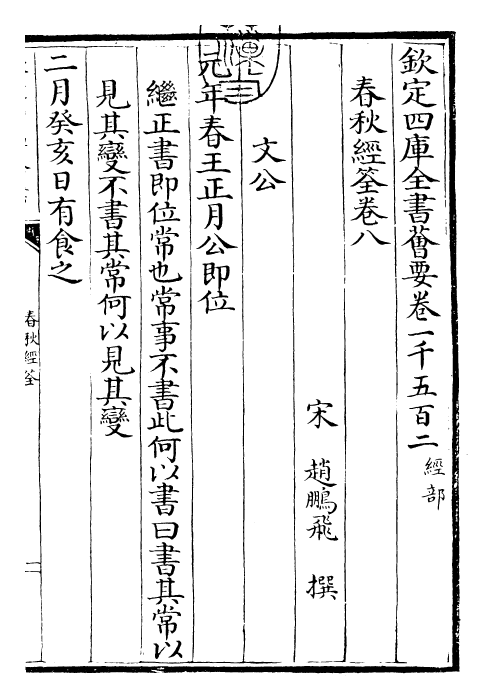 欽定四庫全書薈要卷一千五百二 經部
春秋經筌卷八
宋 趙鵬飛 撰
文公
元年春王正月公即位
繼正書即位常也常事不書此何以書曰書其常以
見其變不書其常何以見其變
二月癸亥日有食之
春秋經筌
一